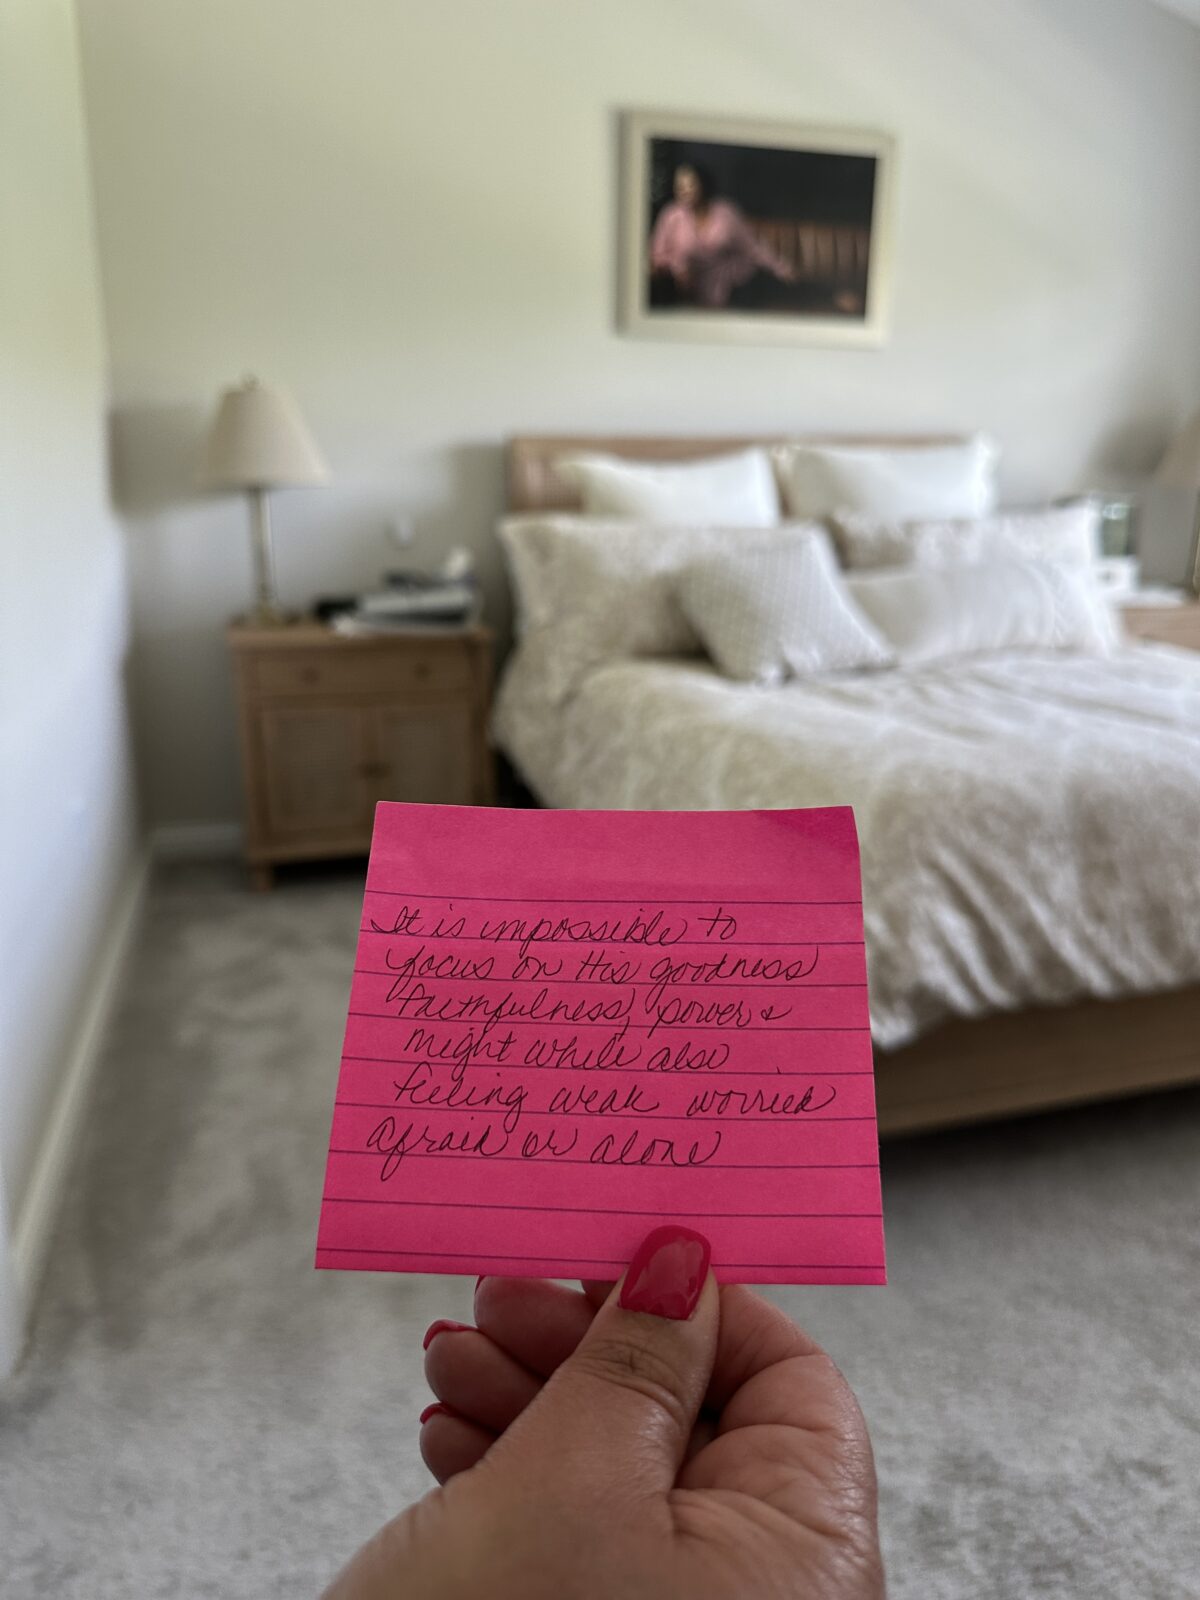 It is impossible to
focus on His goodness
faithfulness, power &
might while also
feeling weak worried
afraid or alone